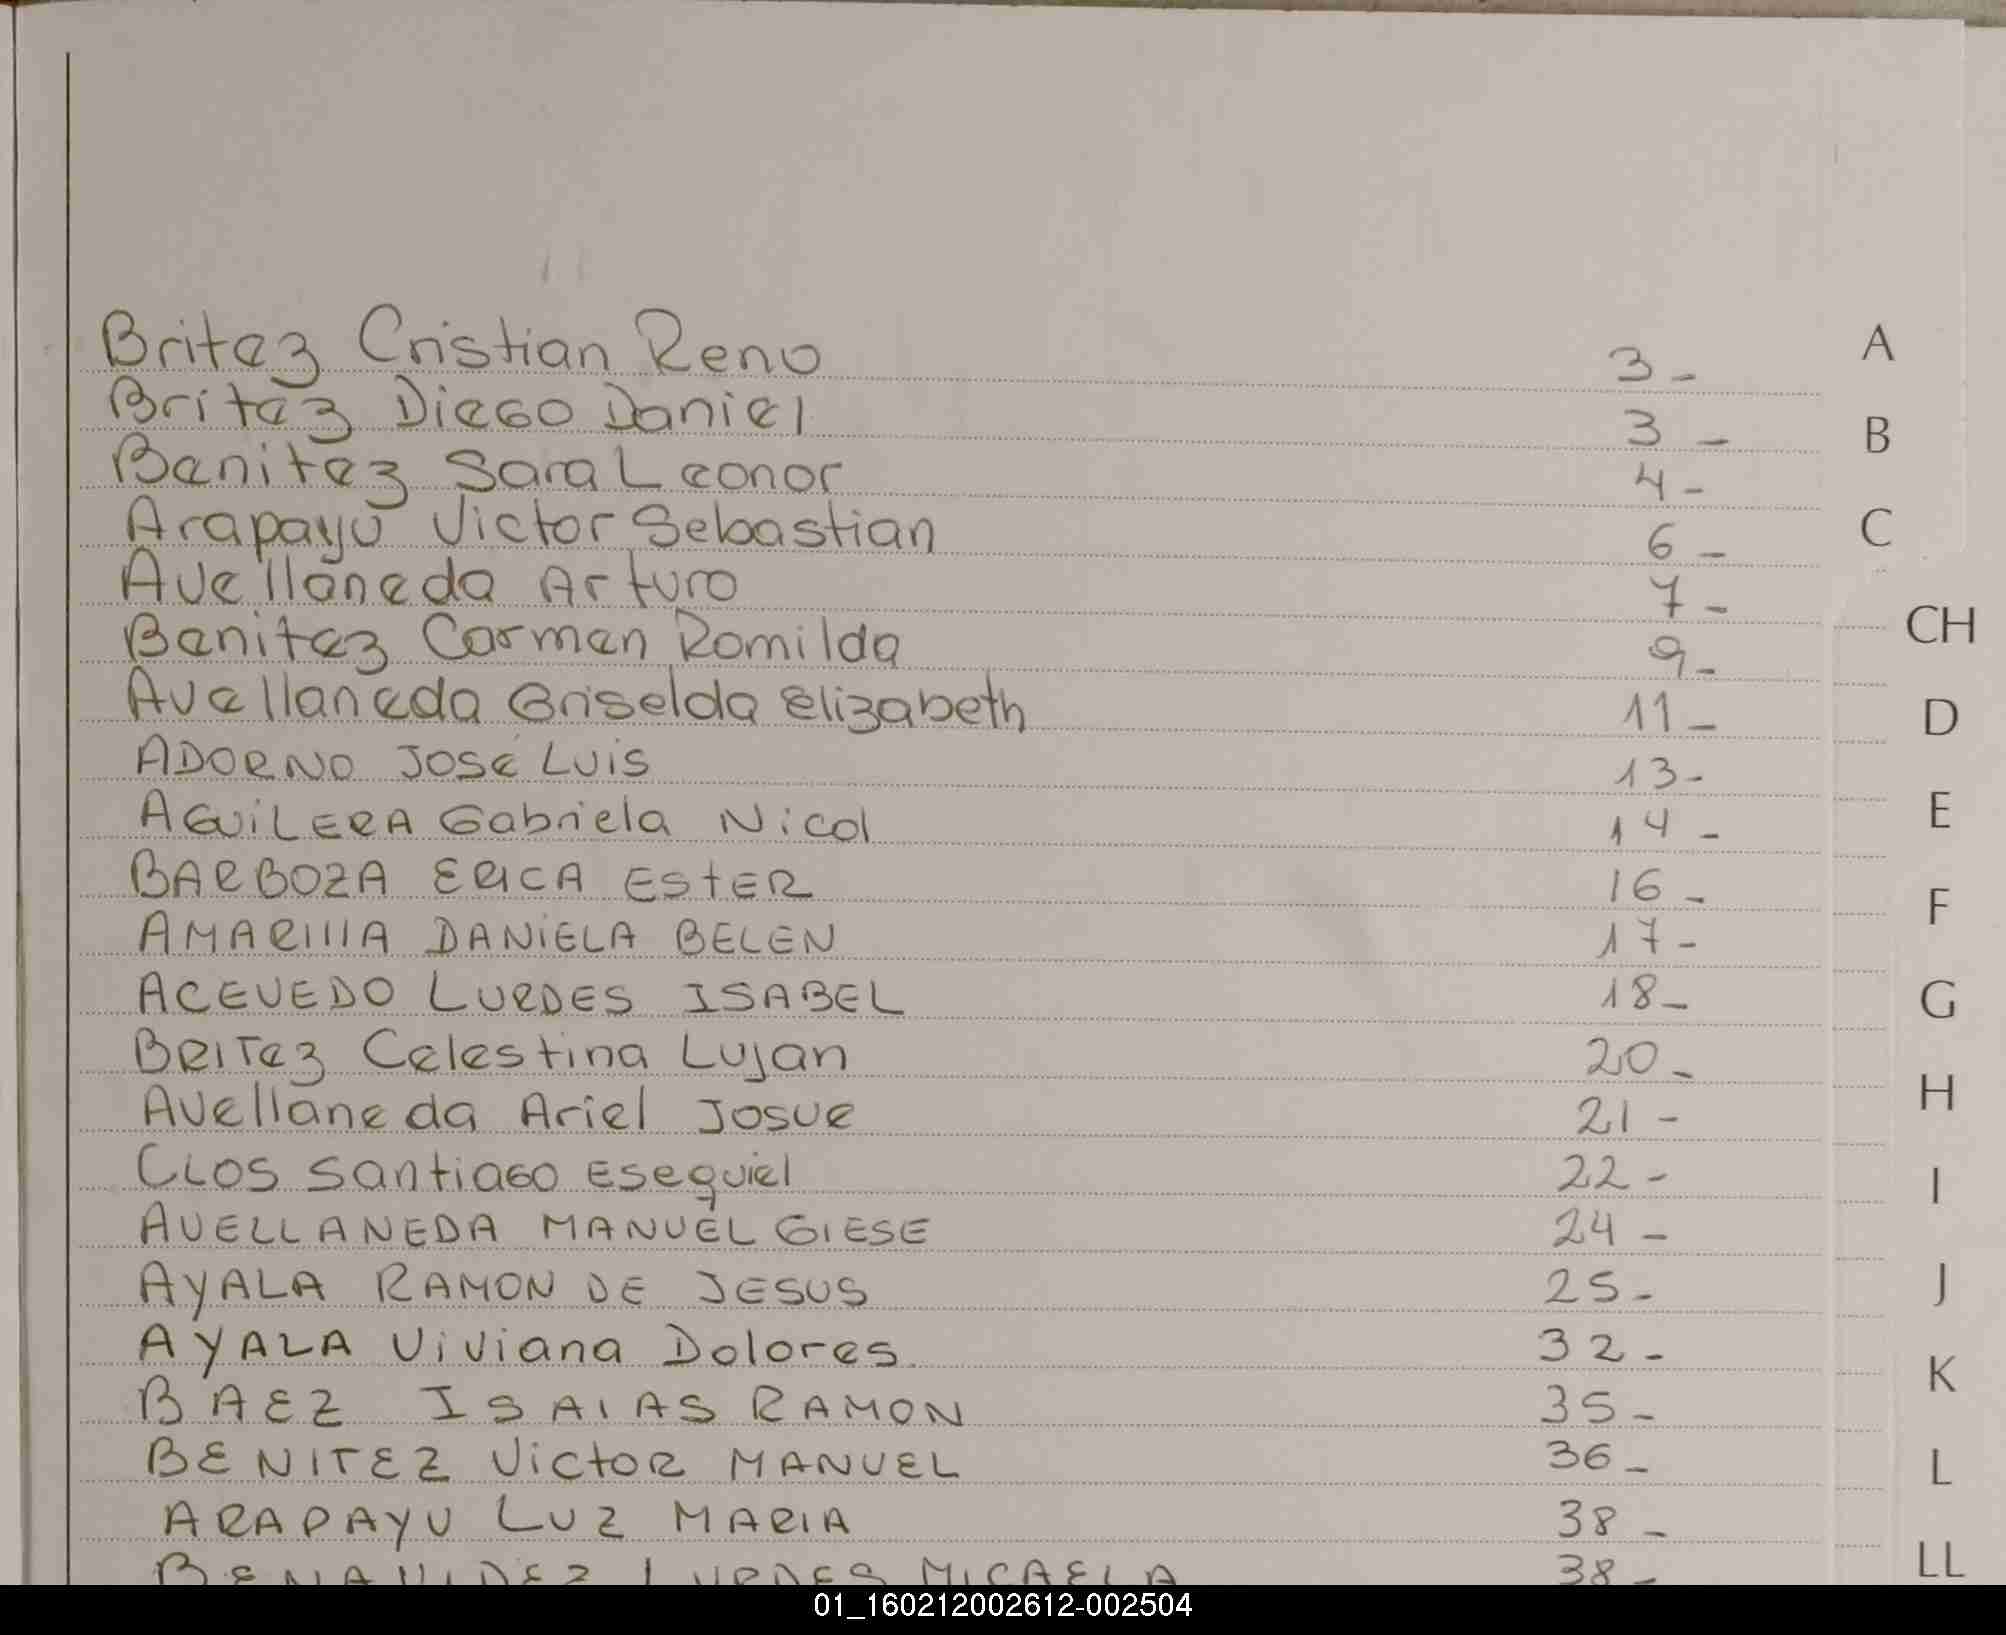 Britez Cristian Reno 3- A
Britez Diego Daniel 3- B
Benitez Sara Leonor 4-
Arapayu Victor Sebastian 6- C
Avellaneda Arturo 7-
Benitez Carmen Romilda 9- CH
Avellaneda Griselda Elizabeth 11- D
ADORNO JOSÉ LUIS 13-
AGUILERA Gabriela Nicol 14- E
BARBOZA ERICA ESTER 16- F
AMARIllA DANIELA BELEN 17-
ACEVEDO LURDES ISABEL 18- G
BRITez Celestina Lujan 20-
Avellaneda Ariel Josue 21- H
CLOS Santiago Esequiel 22- I
AVELLANEDA MANUEL GIESE 24-
AYALA RAMON DE JESUS 25- J
AYALA Viviana Dolores 32-
BAEZ ISAIAS RAMON 35- K
BENITEZ Victor MANUEL 36- L
ARAPAYU LUZ MARIA 38-
BENAVIDEZ LURDES MICAELA 38- LL
01_160212002612-002504